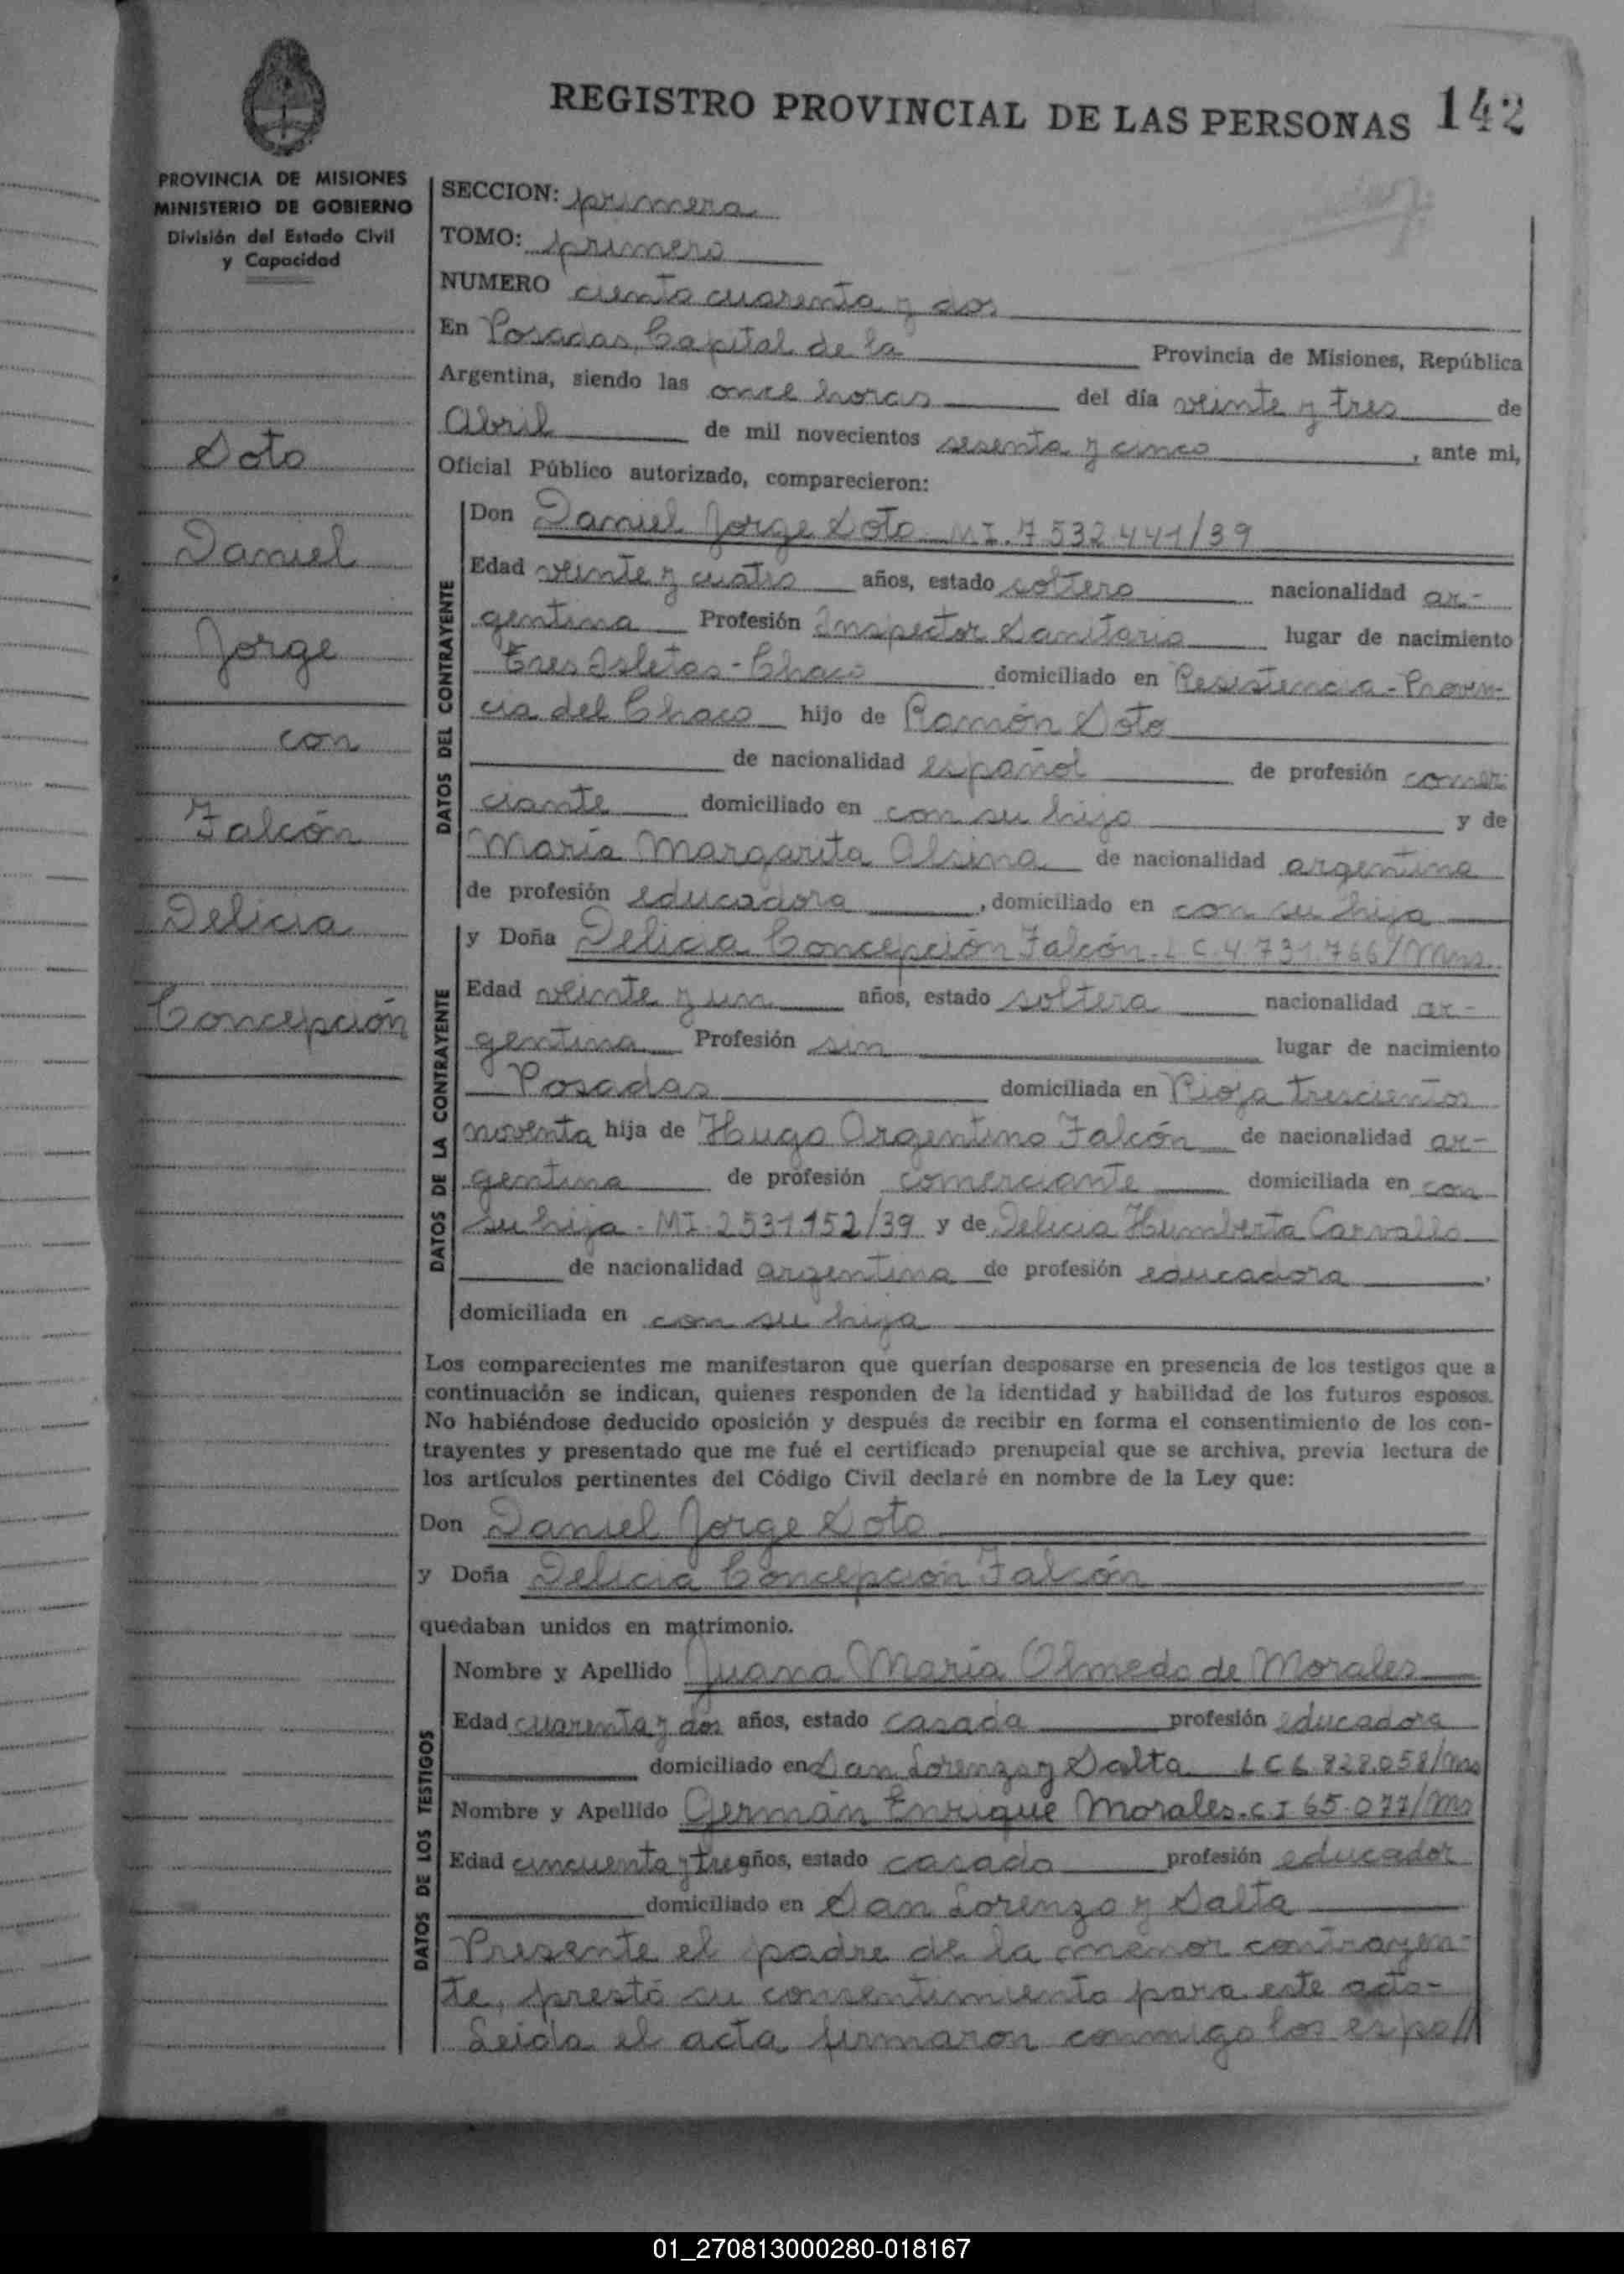 REGISTRO PROVINCIAL DE LAS PERSONAS 142
PROVINCIA DE MISIONES
MINISTERIO DE GOBIERNO
División del Estado Civil
y Capacidad
Soto
Daniel
Jorge
con
Falcón
Delicia
Concepción
SECCION: primera
TOMO: primero
NUMERO ciento cuarenta y dos
En Posadas, Capital de la Provincia de Misiones, República
Argentina, siendo las once horas del día veinte y tres de
Abril de mil novecientos sesenta y cinco, ante mi,
Oficial Público autorizado, comparecieron:
DATOS DEL CONTRAYENTE
Don Daniel Jorge Soto MI. 7532441/39
Edad veinte y cuatro años, estado soltero nacionalidad ar-
gentina Profesión Inspector Sanitario lugar de nacimiento
Tres Isletas - Chaco domiciliado en Resistencia - Provin-
cia del Chaco hijo de Ramón Soto
de nacionalidad español de profesión comer
ciante domiciliado en con su hijo y de
María Margarita Alsina de nacionalidad argentina
de profesión educadora, domiciliado en con su hijo
DATOS DE LA CONTRAYENTE
y Doña Delicia Concepción Falcón. L C. 4.731.766/Mns.
Edad veinte y un años, estado soltera nacionalidad ar-
gentina Profesión sin lugar de nacimiento
Posadas domiciliada en Rioja trescientos
noventa hija de Hugo Argentino Falcón de nacionalidad ar-
gentina de profesión comerciante domiciliada en con
su hija - MI. 2531152/39 y de Delicia Humberta Carvallo
de nacionalidad argentina de profesión educadora,
domiciliada en con su hija
Los comparecientes me manifestaron que querían desposarse en presencia de los testigos que a
continuación se indican, quienes responden de la identidad y habilidad de los futuros esposos.
No habiéndose deducido oposición y después de recibir en forma el consentimiento de los con-
trayentes y presentado que me fué el certificado prenupcial que se archiva, previa lectura de
los artículos pertinentes del Código Civil declaré en nombre de la Ley que:
Don Daniel Jorge Soto
y Doña Delicia Concepción Falcón
quedaban unidos en matrimonio.
DATOS DE LOS TESTIGOS
Nombre y Apellido Juana María Olmedo de Morales
Edad cuarenta y dos años, estado casada profesión educadora
domiciliado en San Lorenzo y Salta L C 6.828.058/Mns
Nombre y Apellido Germán Enrique Morales. C I 65.077/Mns
Edad cincuenta y tres años, estado casado profesión educador
domiciliado en San Lorenzo y Salta
Presente el padre de la menor contrayen-
te, prestó su consentimiento para este acto-
Leida el acta firmaron conmigo los espo//
01_270813000280-018167